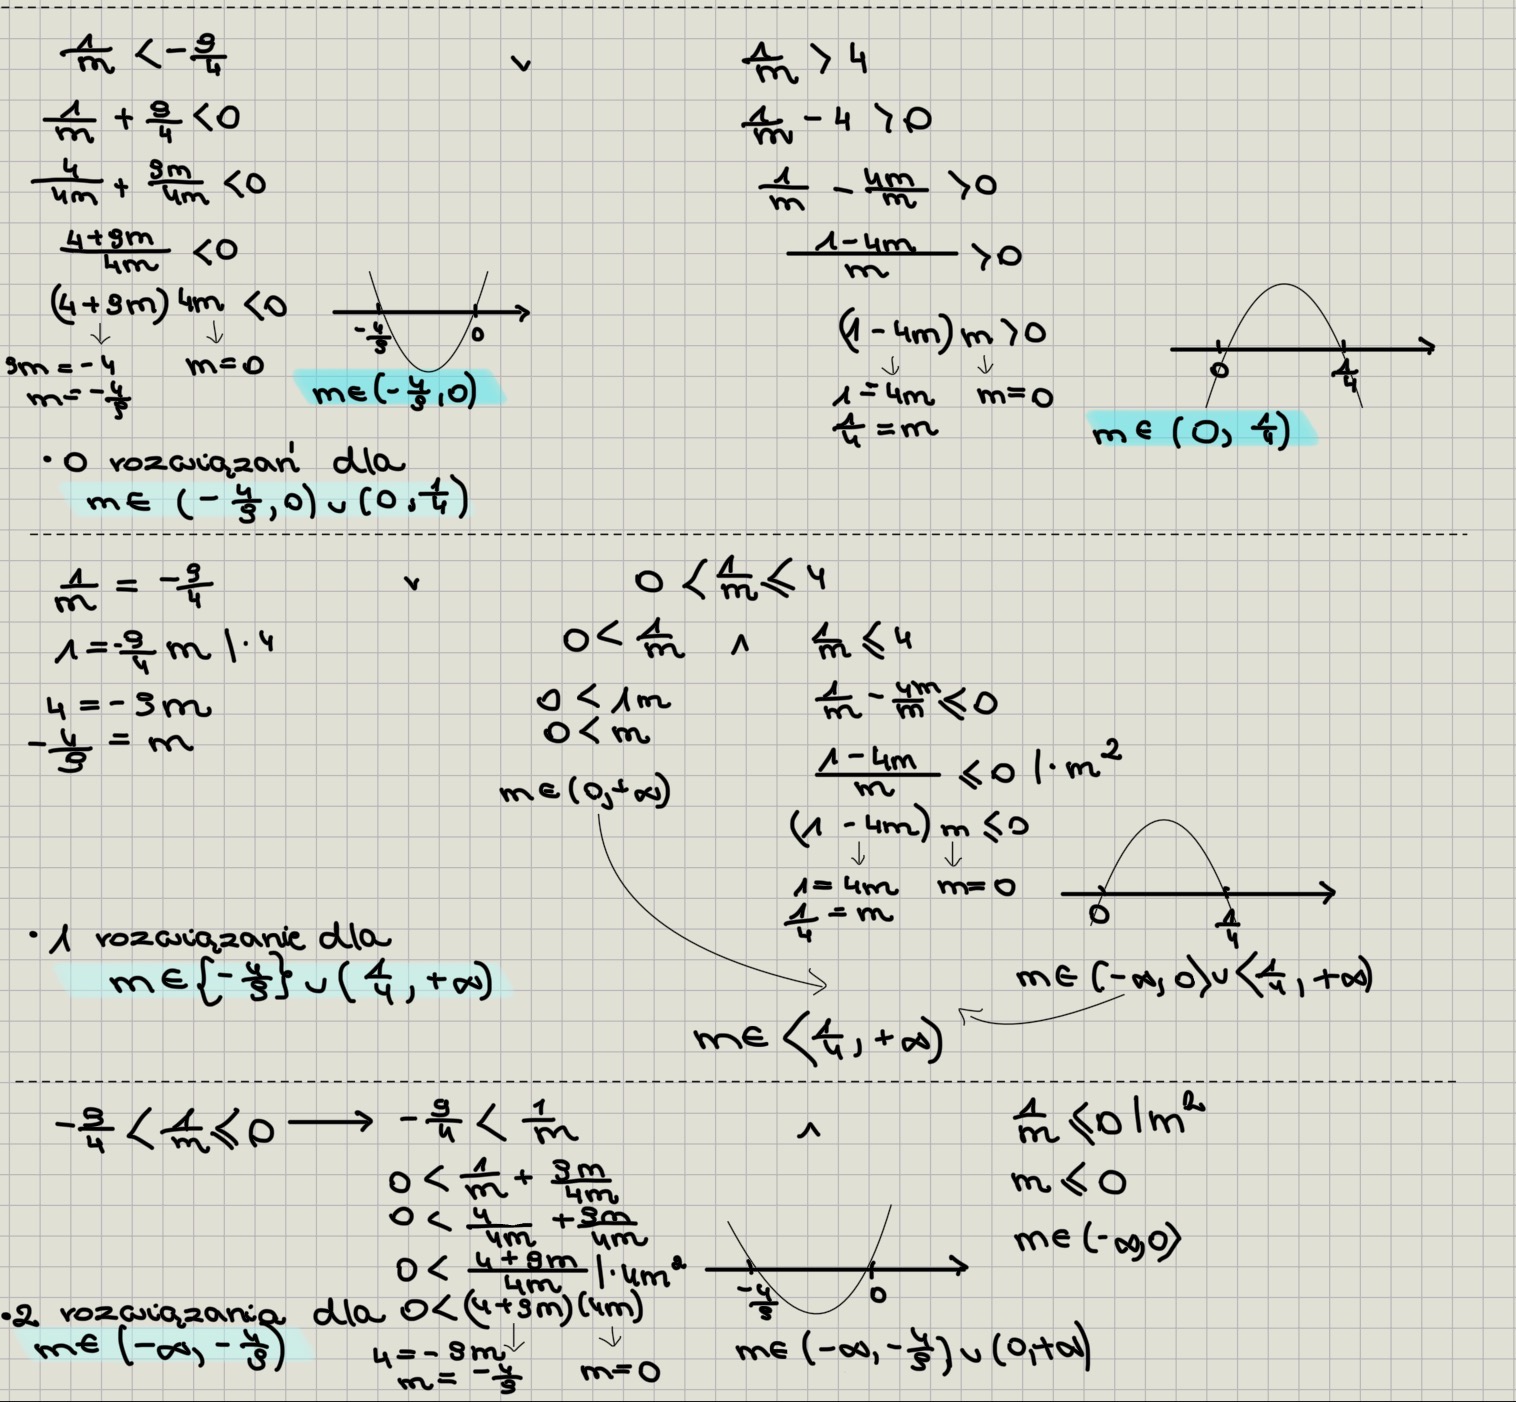 1/m < -9/4 ∨ 1/m > 4
1/m + 9/4 < 0
4/4m + 9m/4m < 0
(4+9m)/4m < 0
(4+9m)4m < 0
↓ ↓
9m = -4 m = 0
m = -4/9
-4/9 0
m ∈ (-4/9, 0)
1/m - 4 > 0
1/m - 4m/m > 0
(1-4m)/m > 0
(1-4m)m > 0
↓ ↓
1 = 4m m = 0
1/4 = m
0 1/4
m ∈ (0, 1/4)
• 0 rozwiązań dla
m ∈ (-4/9, 0) ∪ (0, 1/4)
1/m = -9/4 ∨ 0 < 1/m ≤ 4
1 = -9/4 m |·4
4 = -9m
-4/9 = m
0 < 1/m ∧ 1/m ≤ 4
0 < 1m
0 < m
m ∈ (0, +∞)
1/m - 4m/m ≤ 0
(1-4m)/m ≤ 0 |·m²
(1-4m)m ≤ 0
↓ ↓
1 = 4m m = 0
1/4 = m
0 1/4
m ∈ (-∞, 0⟩ ∪ ⟨1/4, +∞)
m ∈ ⟨1/4, +∞)
• 1 rozwiązanie dla
m ∈ {-4/9} ∪ (1/4, +∞)
-9/4 < 1/m ≤ 0 → -9/4 < 1/m ∧ 1/m ≤ 0 | m²
0 < 1/m + 9m/4m
0 < 4/4m + 9m/4m
0 < (4+9m)/4m |·4m²
0 < (4+9m)(4m)
↓ ↓
4 = -9m m = 0
m = -4/9
-4/9 0
m ∈ (-∞, -4/9) ∪ (0, +∞)
m ≤ 0
m ∈ (-∞, 0⟩
• 2 rozwiązania dla
m ∈ (-∞, -4/9)